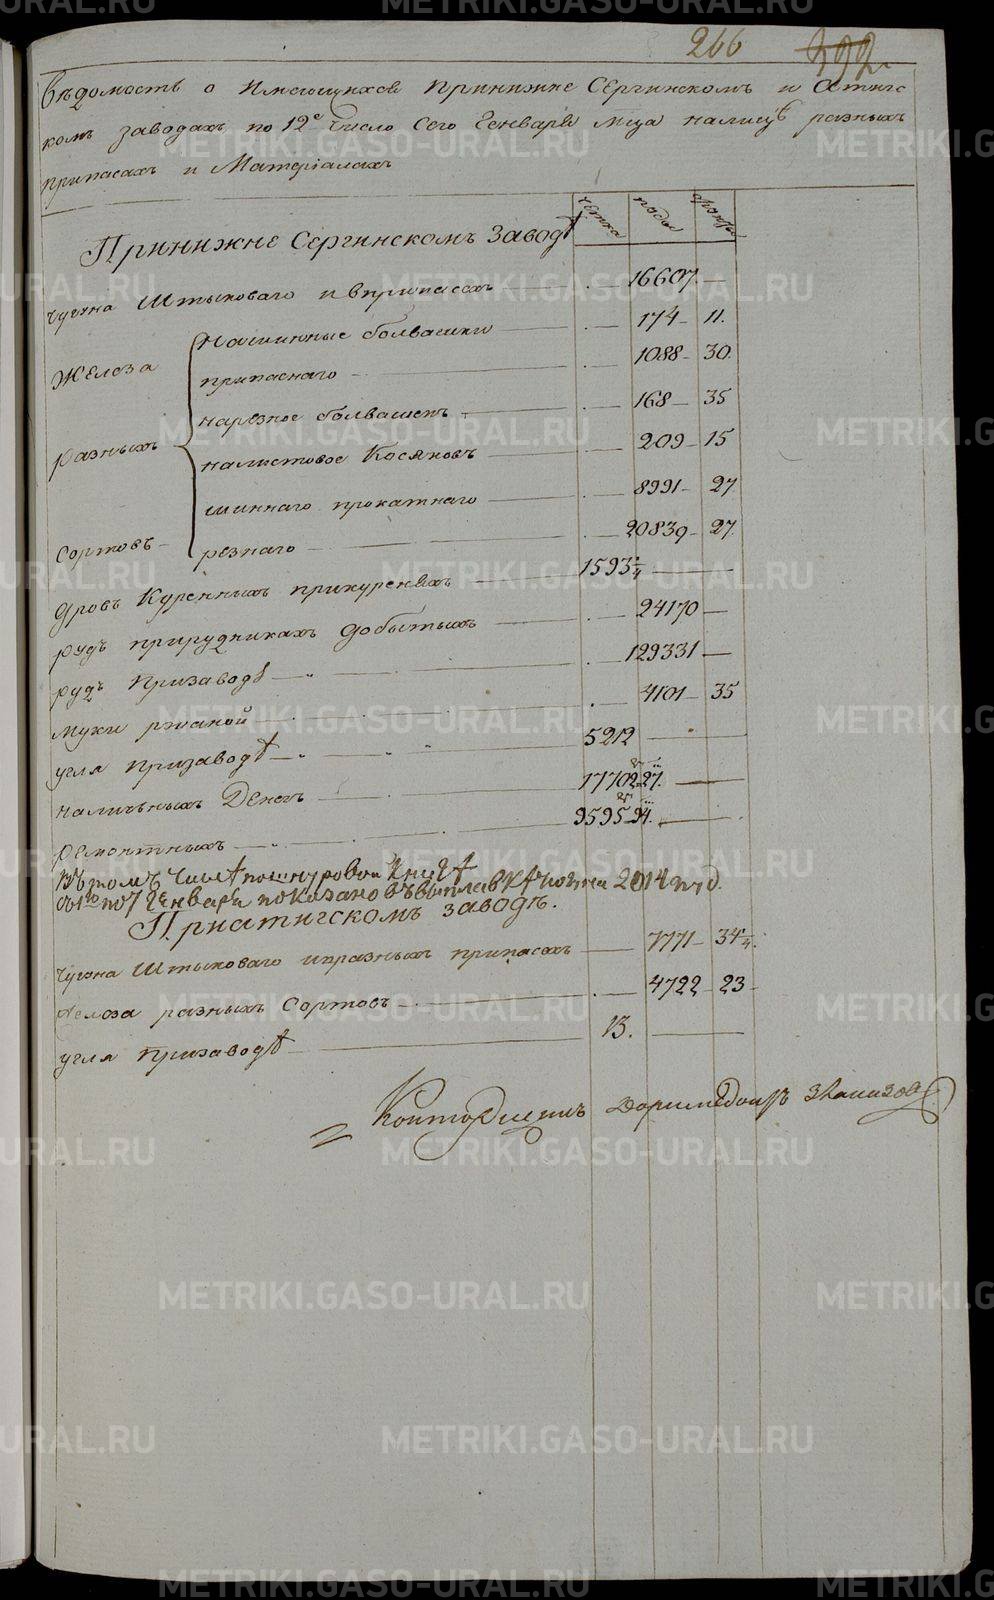 266
392
Вѣдомость о имеющихся принижне Сергинскомъ и Атигс
комъ заводахъ по 12е число сего Генваря мца налицо разныхъ
припасахъ и Матеріалахъ
пуды
фунты
Принижне Сергинскомъ заводѣ
чугуна Штыковаго и вприпасахъ 16607
Железа
разныхъ
сортовъ
нашинные болвашки 174 11.
припаснаго 1088 30.
нарезное болвашекъ 168 35
налистовое Косяковъ 209 15
шиннаго прокатнаго 8991 27
резнаго 20839 27.
дровъ Куренныхъ прикуреняхъ 1593 1/4
рудъ прирудникахъ добытыхъ 24170
рудъ призаводѣ 129331
муки ржаной 4101 35
угля призаводѣ 5212
наличныхъ Денегъ 17702 27.
ремонтныхъ 9595 94.
Въ томъ числѣ пошнуровой Книгѣ
съ 1го по 7 Генваря показано въ выплавкѣ чугуна 2014 пуд.
Приатигскомъ заводѣ.
чугуна Штыковаго иразныхъ припасахъ 7771 34 1/4.
железа разныхъ Сортовъ 4722 23
угля призаводѣ 13.
METRIKI.GASO-URAL.RU